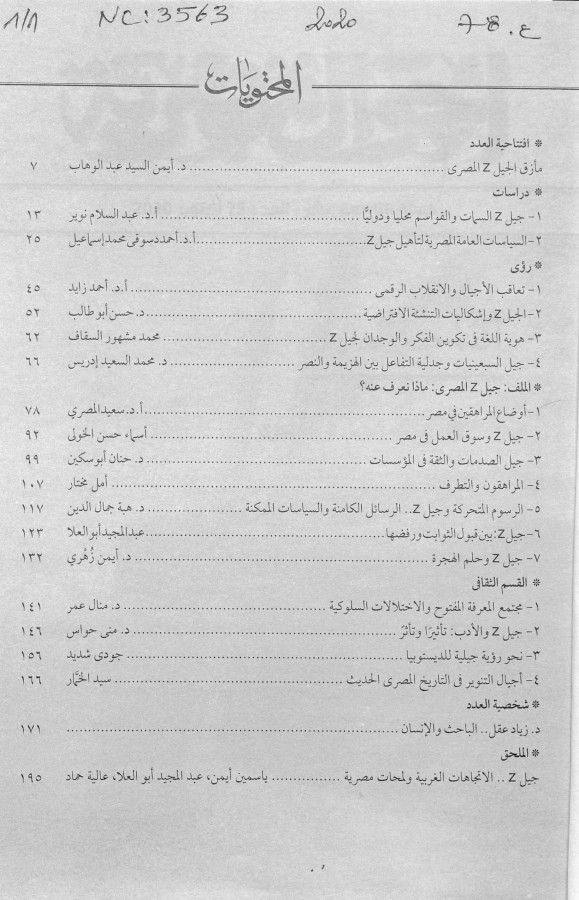 ع. 78 2020 NC: 3563 1/1
المحتويات
* افتتاحية العدد
مأزق الجيل Z المصرى ................ د. أيمن السيد عبد الوهاب ٧
* دراسات
١- جيل Z السمات والقواسم محليا ودوليًّا ................ أ.د. عبد السلام نوير ١٣
٢-السياسات العامة المصرية لتأهيل جيل Z ................ أ.د. أحمد دسوقى محمد إسماعيل ٢٥
* رؤى
١- تعاقب الأجيال والانقلاب الرقمى ................ أ.د. أحمد زايد ٤٥
٢-الجيل Z وإشكاليات التنشئة الافتراضية ................ د. حسن أبو طالب ٥٢
٣- هوية اللغة فى تكوين الفكر والوجدان لجيل Z ................ محمد مشهور السقاف ٦٢
٤- جيل السبعينيات وجدلية التفاعل بين الهزيمة والنصر ................ د. محمد السعيد إدريس ٦٦
* الملف: جيل Z المصرى: ماذا نعرف عنه؟
١- أوضاع المراهقين في مصر ................ أ.د. سعيد المصري ٧٨
٢- جيل Z وسوق العمل فى مصر ................ أسماء حسن الخولى ٩٢
٣- جيل الصدمات والثقة فى المؤسسات ................ د. حنان أبو سكين ٩٩
٤- المراهقون والتطرف ................ أمل مختار ١٠٧
٥- الرسوم المتحركة وجيل Z.. الرسائل الكامنة والسياسات الممكنة ................ د. هبة جمال الدين ١١٧
٦-جيل Z: بين قبول الثوابت ورفضها ................ عبد المجيد أبو العلا ١٢٣
٧- جيل Z وحلم الهجرة ................ د. أيمن زُهْري ١٣٢
* القسم الثقافى
١- مجتمع المعرفة المفتوح والاختلالات السلوكية ................ د. منال عمر ١٤١
٢- جيل Z والأدب: تأثيرًا وتأثرً ................ د. منى حواس ١٤٦
٣- نحو رؤية جيلية للديستوبيا ................ جودى شديد ١٥٦
٤- أجيال التنوير فى التاريخ المصرى الحديث ................ سيد الخمَّار ١٦٦
* شخصية العدد
د. زياد عقل.. الباحث والإنسان ................ ١٧١
* الملحق
جيل Z .. الاتجاهات الغربية ولمحات مصرية ................ ياسمين أيمن، عبد المجيد أبو العلا، عالية حماد ١٩٥